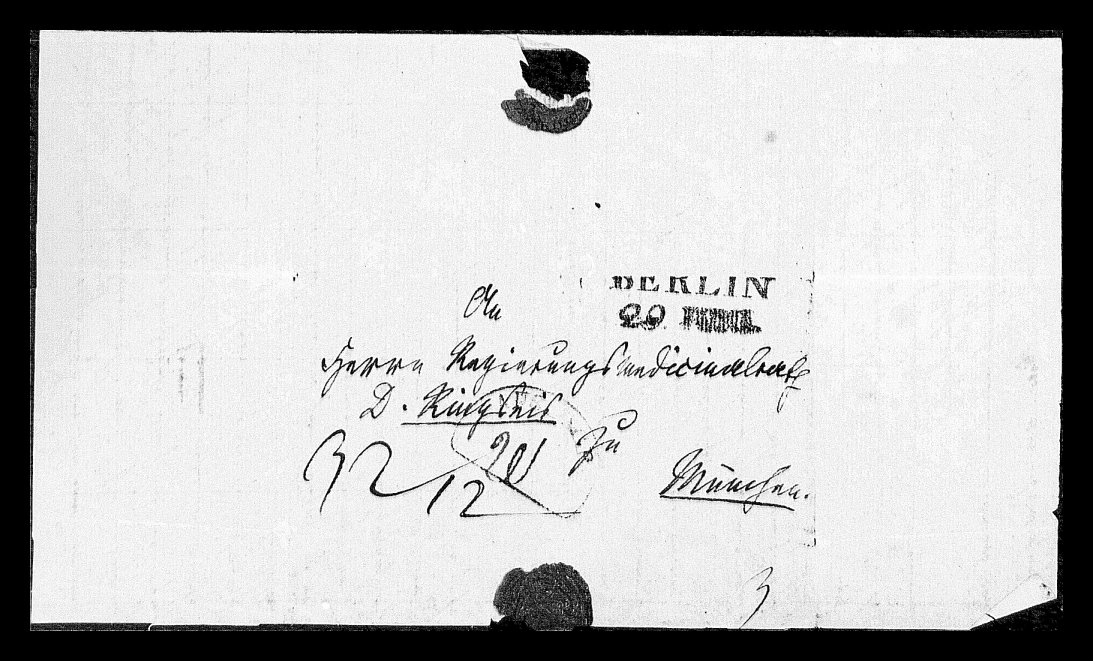 BERLIN
20
An
Herrn Regierungsmedicinalrath
D. Ringseis
zu
München.
32
12
3